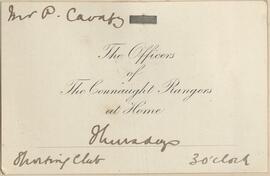 Mr P. Cavafy
The Officers
of
The Connaught Rangers
at Home
Thursdays
Sporting Club 3 o'clock